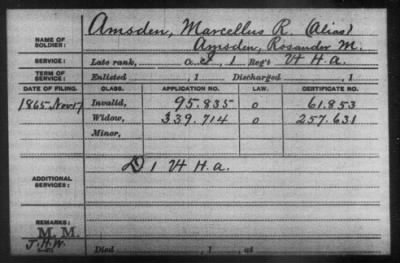 Amsden, Marcellus R. (Alias)
NAME OF SOLDIER: Amsden, Rosander M.
SERVICE: Late rank, 1 Reg't Vt H.A.
TERM OF SERVICE: Enlisted , 1 Discharged , 1
DATE OF FILING. CLASS. APPLICATION NO. LAW. CERTIFICATE NO.
1865 Nov 17 Invalid, 95.835 o 61.853
Widow, 339.714 o 257.631
Minor,
ADDITIONAL SERVICES: D 1 Vt H.A.
REMARKS:
M. M.
J.H.W. Died , 1 , at